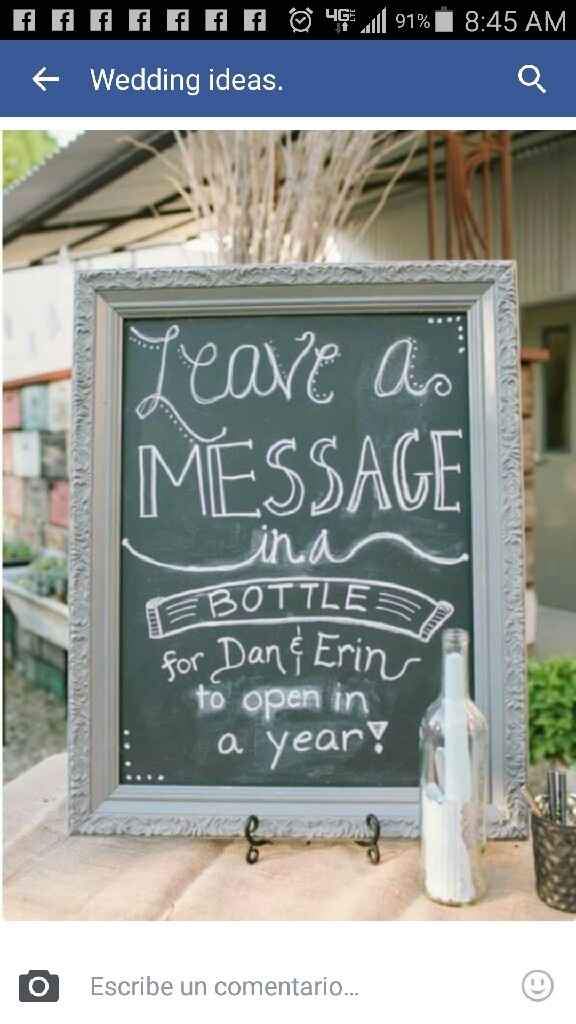 4G 91% 8:45 AM
Wedding ideas.
Leave a
MESSAGE
in a
BOTTLE
for Dan & Erin
to open in
a year!
Escribe un comentario...